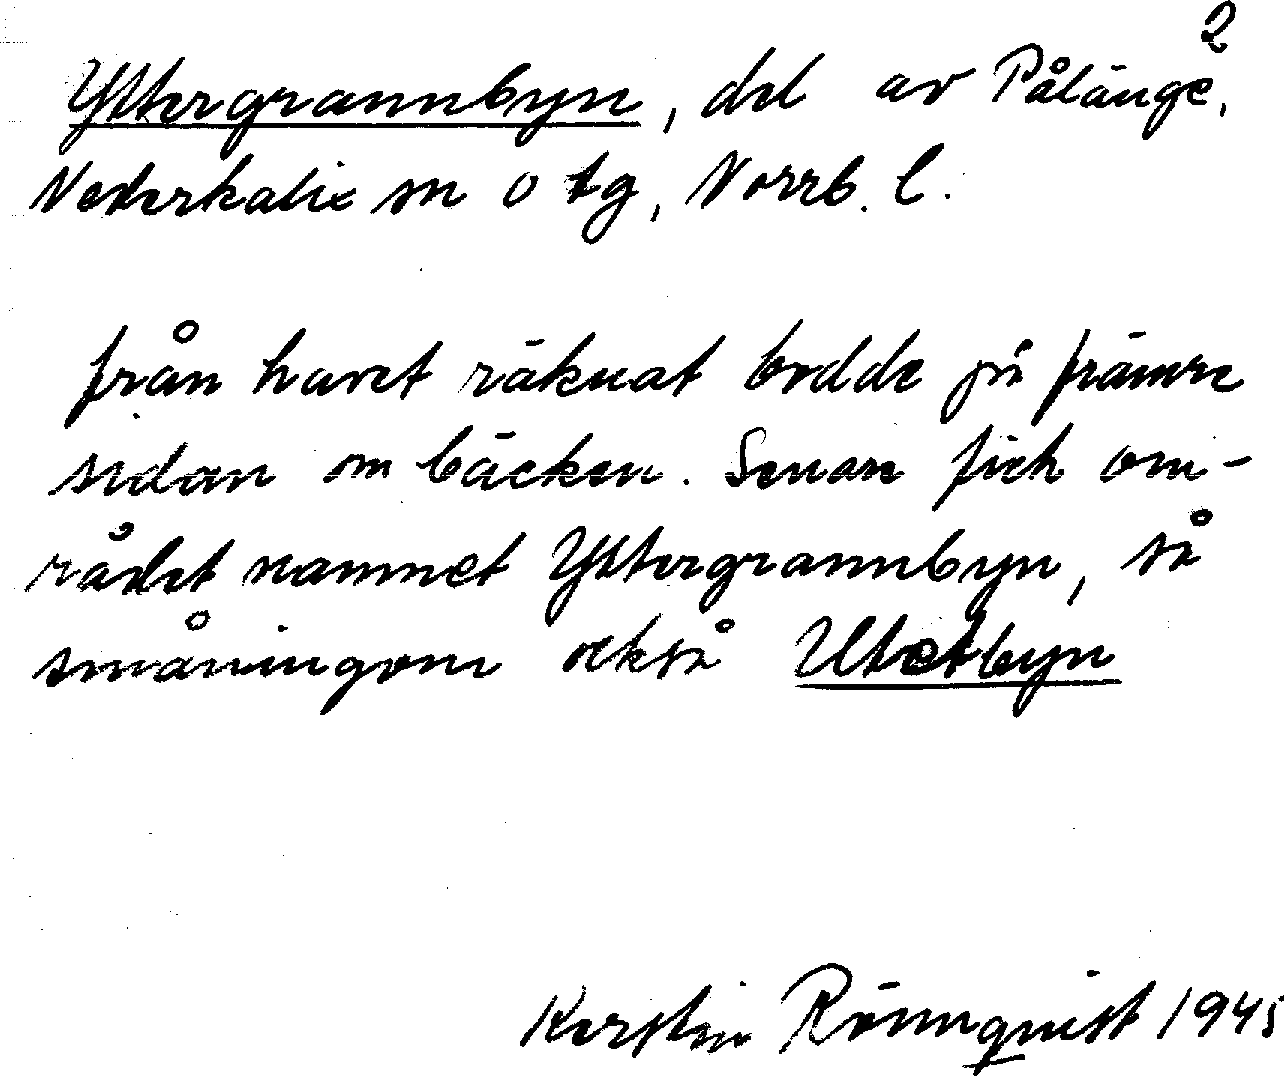 2
Yttergrannbyn, del av Pålänge,
Nederkalix sn o tg, Norrb. l.
från havet räknat bodde på främre
sidan om bäcken. Senare fick om-
rådet namnet Yttergrannbyn, så
småningom också Utetbyn
Kerstin Rönnqvist 1945